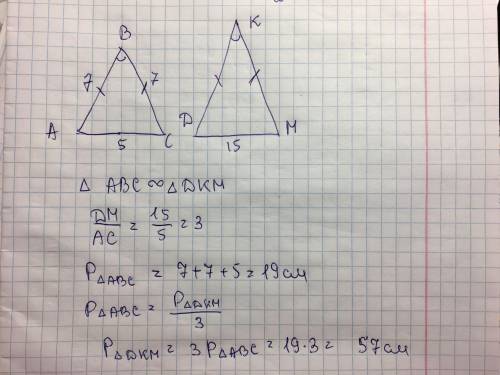 B
K
7 7
A 5 C
D 15 M
Δ ABC ∞ Δ DKM
DM/AC = 15/5 = 3
P ΔABC = 7+7+5=19 см
P ΔABC = P ΔDKM/3
P ΔDKM = 3 P ΔABC = 19·3 = 57 см